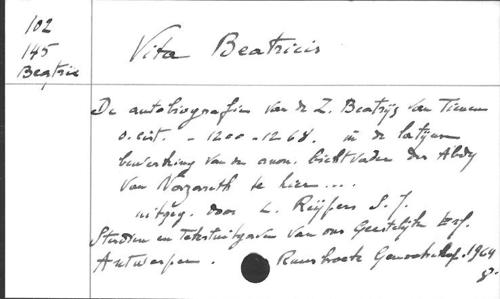 102
145
Beatric
Vita Beatricis
De autobiografie van de Z. Beatrijs van Tienen
O. cist. - 1200-1268. in de latijnse
bewerking van den anon. biechtvader der Abdij
van Nazareth te Lier ...
uitgeg. door L. Reypens S.J.
Studiën en Tekstuitgaven van ons Geestelijk Erf.
Antwerpen. Ruusbroec Genootschap. 1964
8°